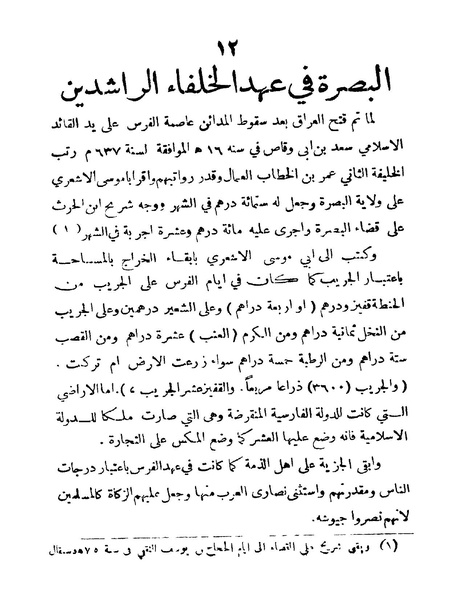 ١٢
البصرة في عهد الخلفاء الراشدين
لما تم فتح العراق بعد سقوط المدائن عاصمة الفرس على يد القائد
الاسلامي سعد بن ابى وقاص في سنه ١٦ ه الموافقة لسنة ٦٣٧ م رتب
الخليفة الثاني عمر بن الخطاب العمال وقدر رواتبهم واقر ابا موسى الاشعري
على ولاية البصرة وجعل له ستمائة درهم في الشهر ووجه شريح ابن الحرث
على قضاء البصرة واجرى عليه مائة درهم وعشرة اجربة في الشهر (١)
وكتب الى ابي موسى الاشعري بابقاء الخراج بالمساحة
باعتبار الجريب كما كان في ايام الفرس على الجريب من
الحنطة قفيز ودرهم (او اربعة دراهم) وعلى الشعير درهمين وعلى الجريب
من النخل ثمانية دراهم ومن الكرم (العنب) عشرة دراهم ومن القصب
ستة دراهم ومن الرطبة خمسة دراهم سواء زرعت الارض ام تركت .
(والجريب (٣٦٠٠) ذراعا مربعاً. والقفيز عشر الجريب ٧). اما الاراضي
التي كانت للدولة الفارسية المنقرضة وهى التي صارت ملكا للدولة
الاسلامية فانه وضع عليها العشر كما وضع المكس على التجارة .
وابقى الجزية على اهل الذمة كما كانت في عهد الفرس باعتبار درجات
الناس ومقدرتهم واستثنى نصارى العرب منها وجعل عليهم الزكاة كالمسلمين
لانهم نصروا جيوشه.
(١) وبقى شريح على القضاء الى ايام الحجاج بن يوسف الثقفي في سنة ٧٥ ه وسنقال